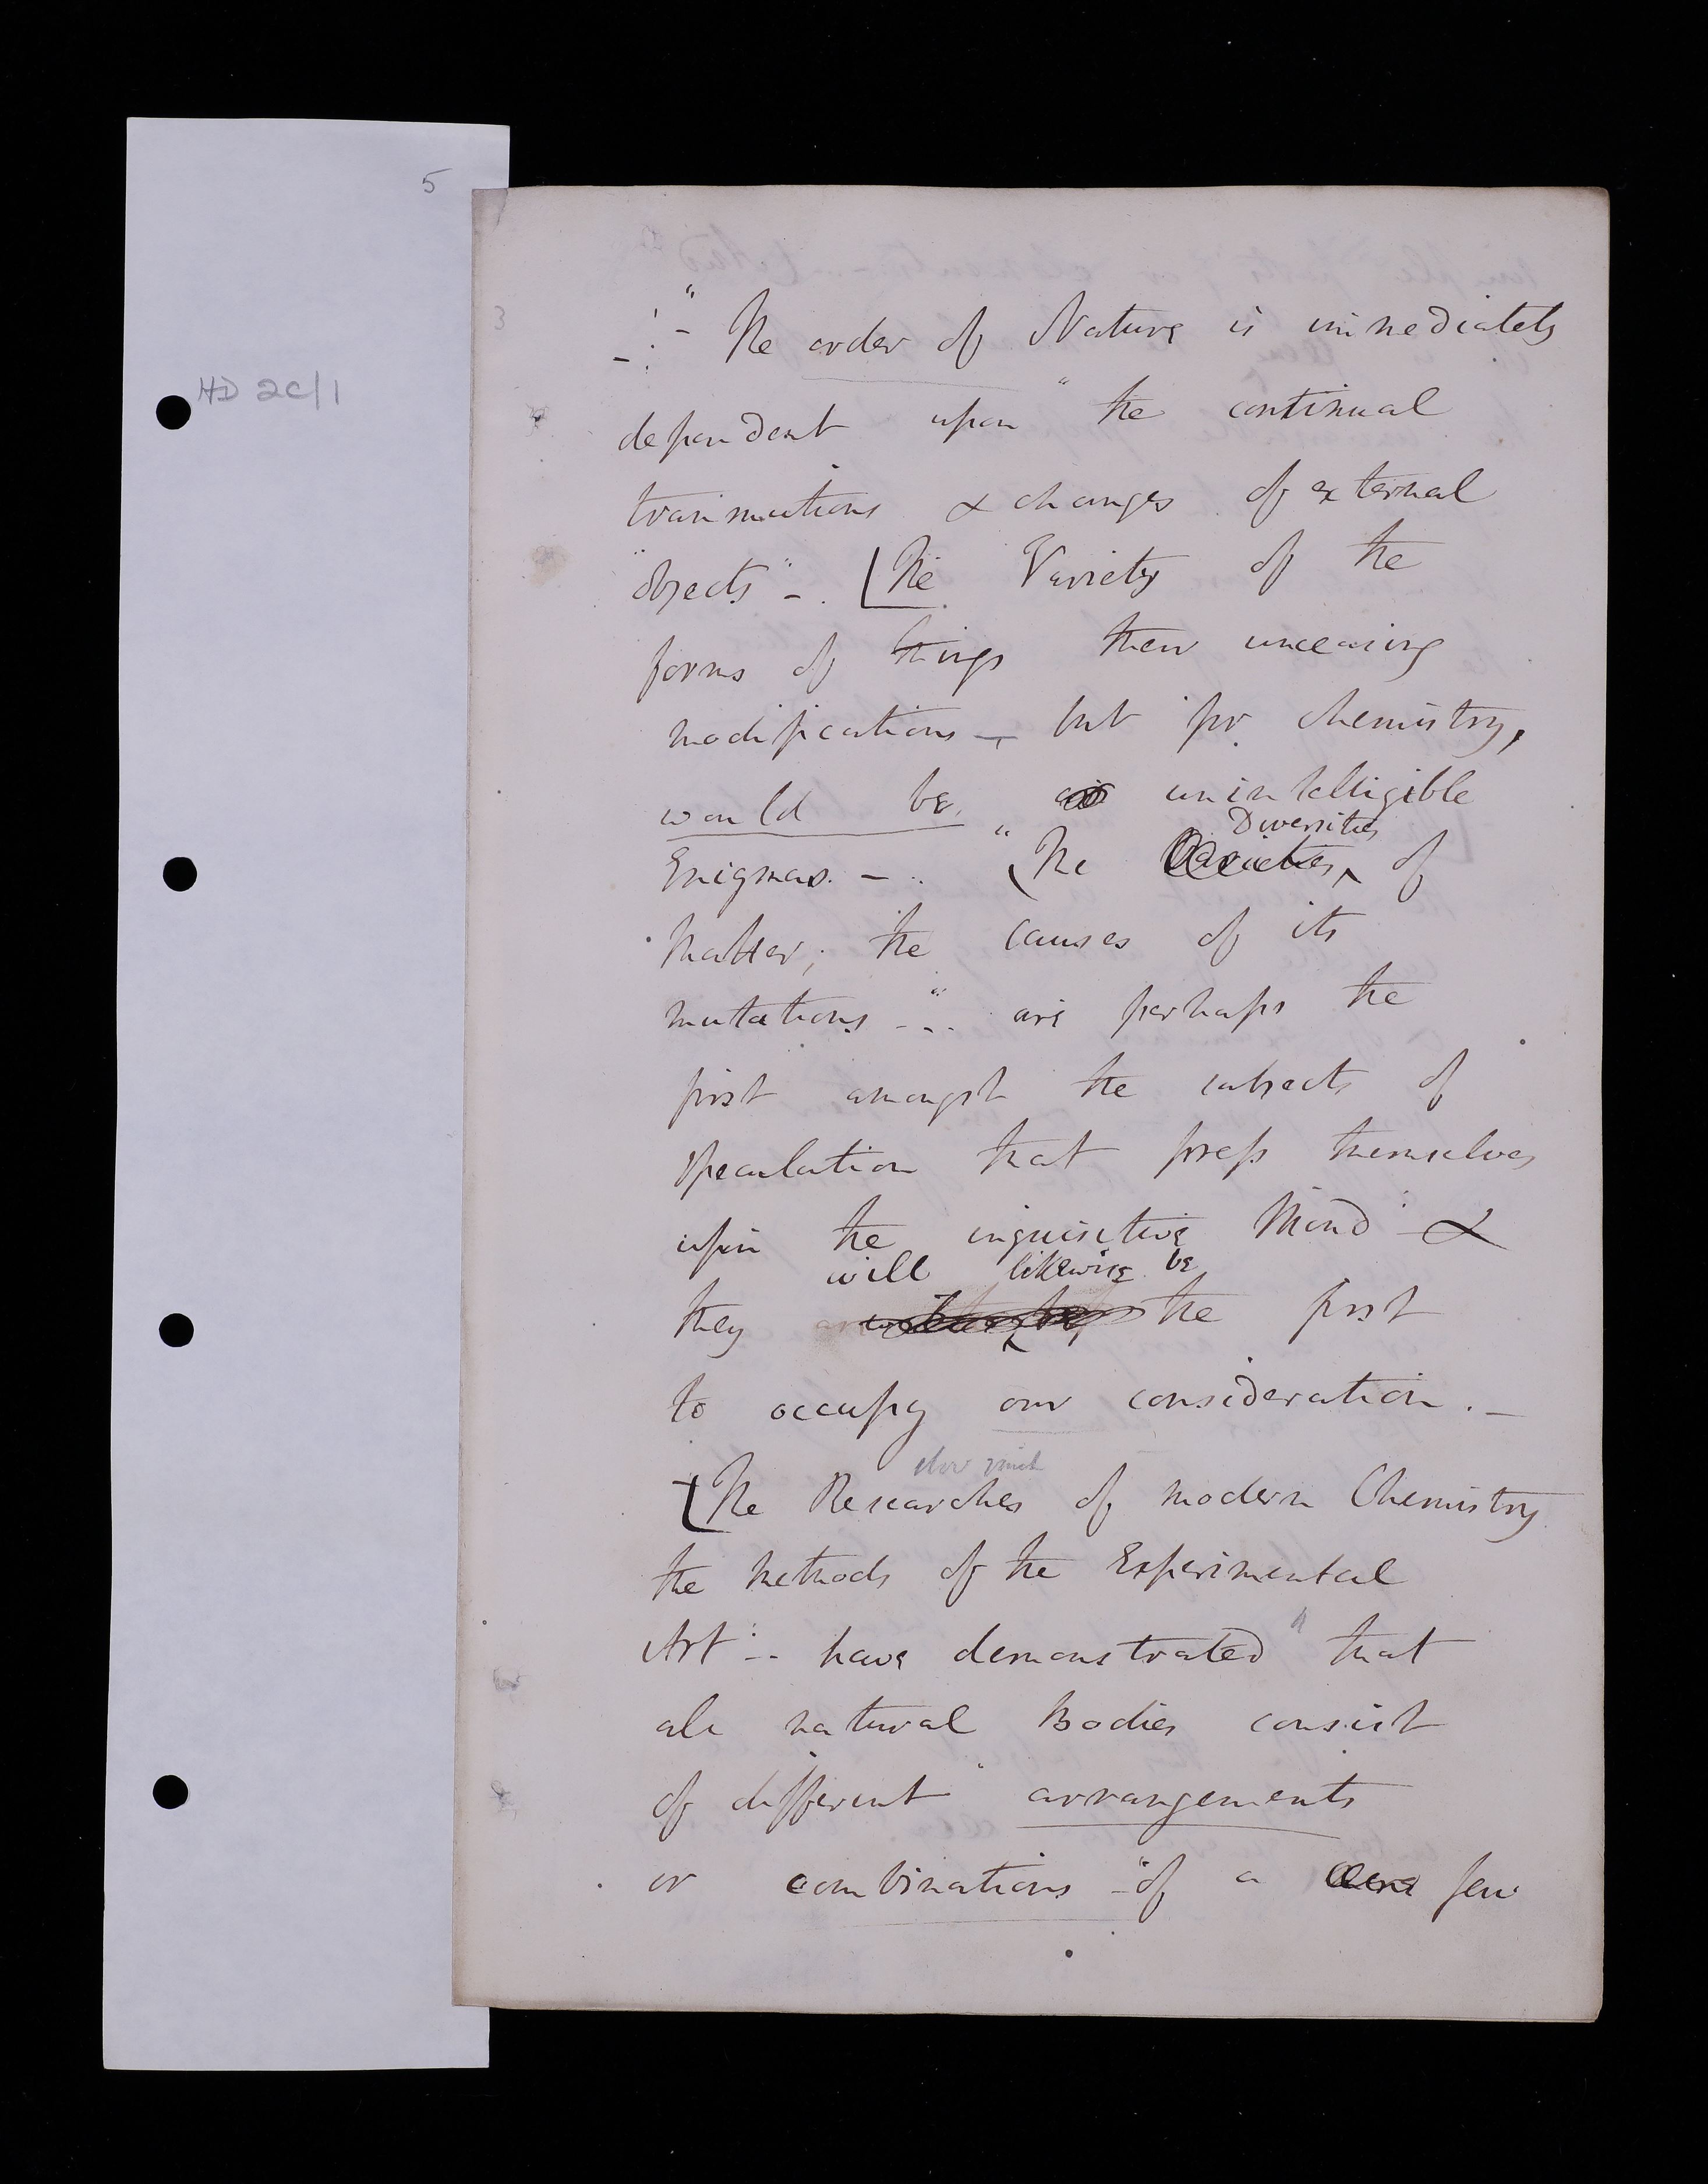 5
HD 2C/1
3
-:- " The order of Nature is immediately
dependent upon " the continual
transmutions & changes of external
"objects" -. [The Variety of the
forms of things their unceasing
modifications -, but for chemistry,
would be unintelligible
Diversities
Enigmas. - .. " (The Varieties, of
matter; the causes of its
mutations " -.. are perhaps the
first amongst the subjects of
speculation that press themselves
upon the inquisitive Mind " &
will likewise be
they the first
to occupy our consideration. -
[The Researches of modern Chemistry
the methods of the Experimental
Art :-- have demonstrated " that
all natural Bodies consist
of different " arrangements
or combinations -" of a few